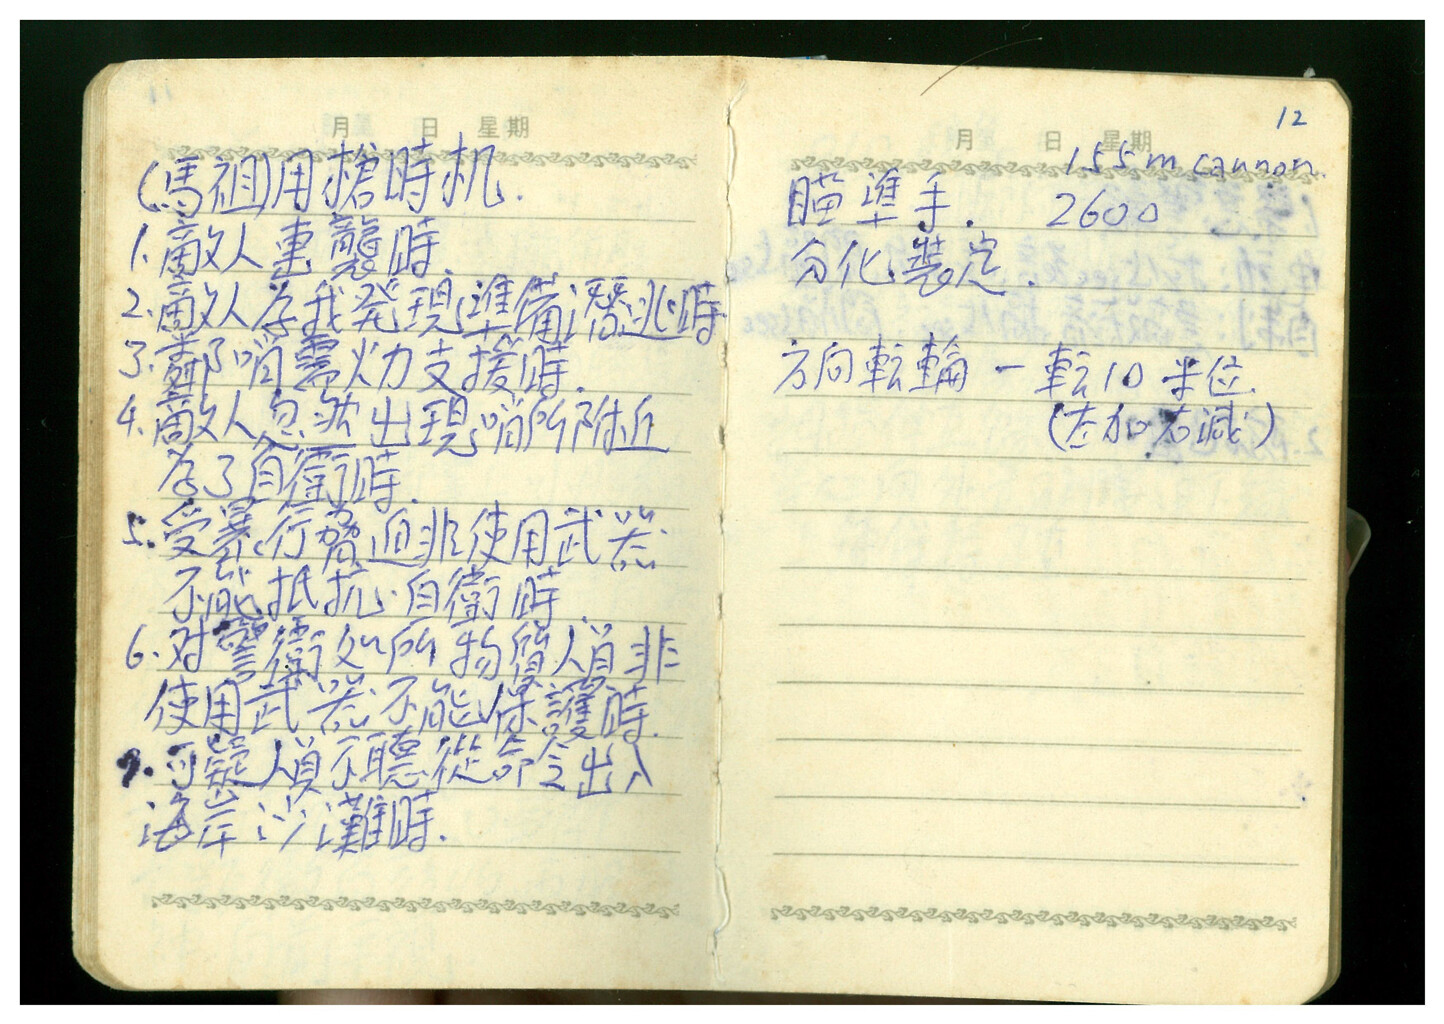 月 日 星期
(馬祖)用槍時机.
1. 敵人車襲時.
2. 敵人为我発現準備潛逃時
3. 鄰哨需火力支援時.
4. 敵人忽然出現哨所附近
为了自衛時.
5. 受暴行脅迫非使用武器
不能抵抗自衛時.
6. 对警衛処所物質人員非
使用武器不能保護時.
7. 可疑人員不聽從命令出入
海岸沙灘時.
12
月 日 星期
155m cannon.
瞄準手. 2600
分化裝定.
方向転輪一転10米位.
(左加右減)